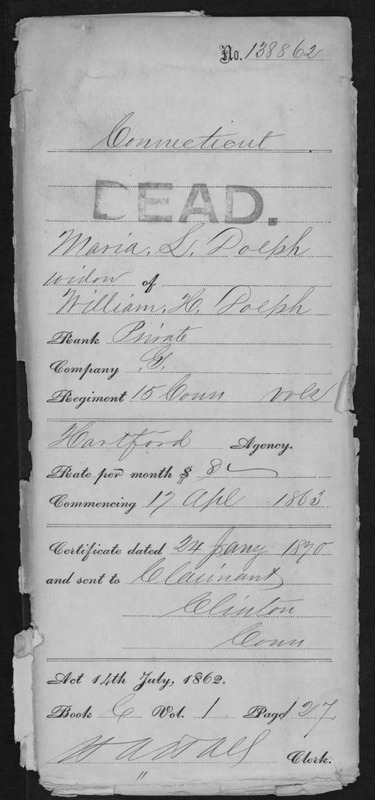 No. 138862
Connecticut
DEAD.
Maria. L. Dolph
widow of
William. H. Dolph
Rank Private
Company G.
Regiment 15 Conn vols
Hartford Agency.
Rate per month $ 8
Commencing 17 Apl 1863
Certificate dated 24 Jany 1870
and sent to Claimant
Clinton
Conn
Act 14th July, 1862.
Book C Vol. 1 Page 127
Clerk.
"